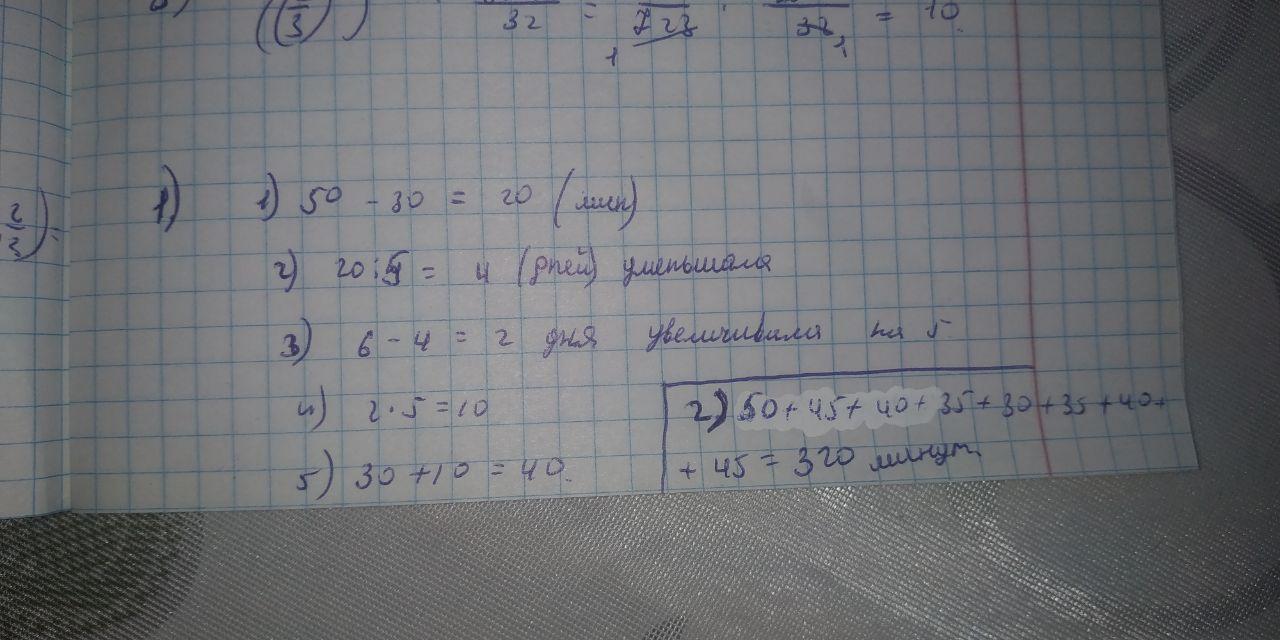 ((3))
32 = 723 · 32 = 10
1 1
2
3) =
1) 1) 50 - 30 = 20 (мин)
2) 20 : 5 = 4 (дней) уменьшала
3) 6 - 4 = 2 дня увеличивала на 5
4) 2 · 5 = 10
5) 30 + 10 = 40.
2) 50 + 45 + 40 + 35 + 30 + 35 + 40 +
+ 45 = 320 минут